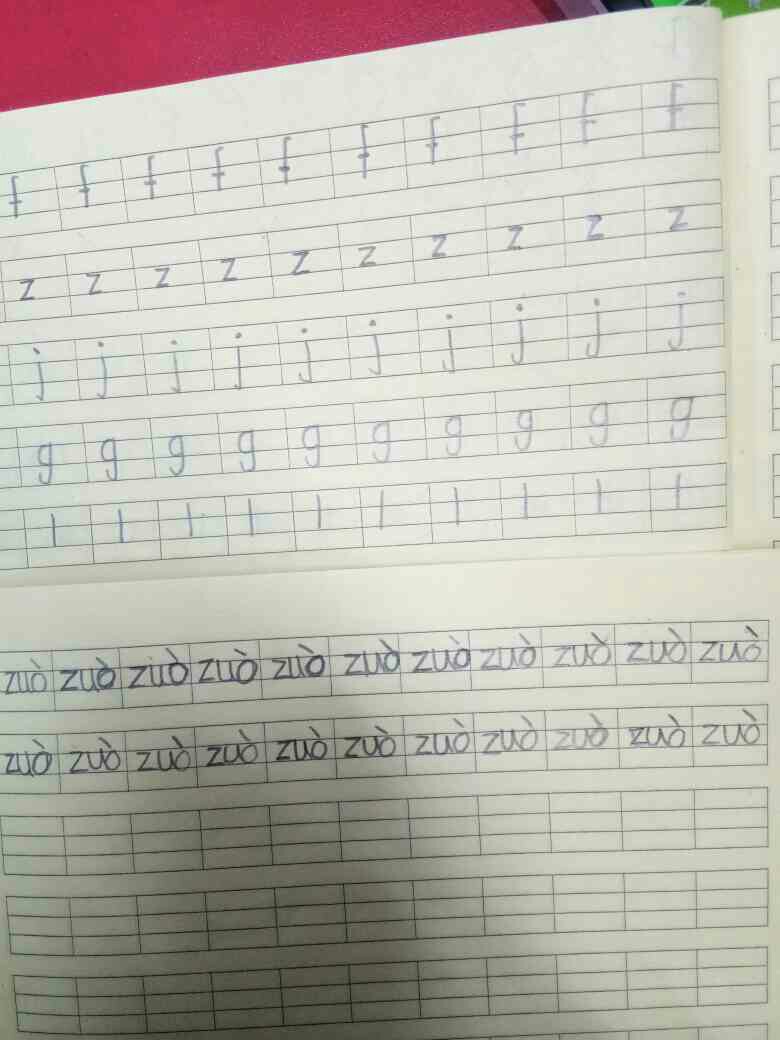 f f f f f f f f f f
z z z z z z z z z z
j j j j j j j j j j
g g g g g g g g g g
l l l l l l l l l l
zuò zuò zuò zuò zuò zuò zuò zuò zuò zuò zuò
zuò zuò zuò zuò zuò zuò zuò zuò zuò zuò zuò